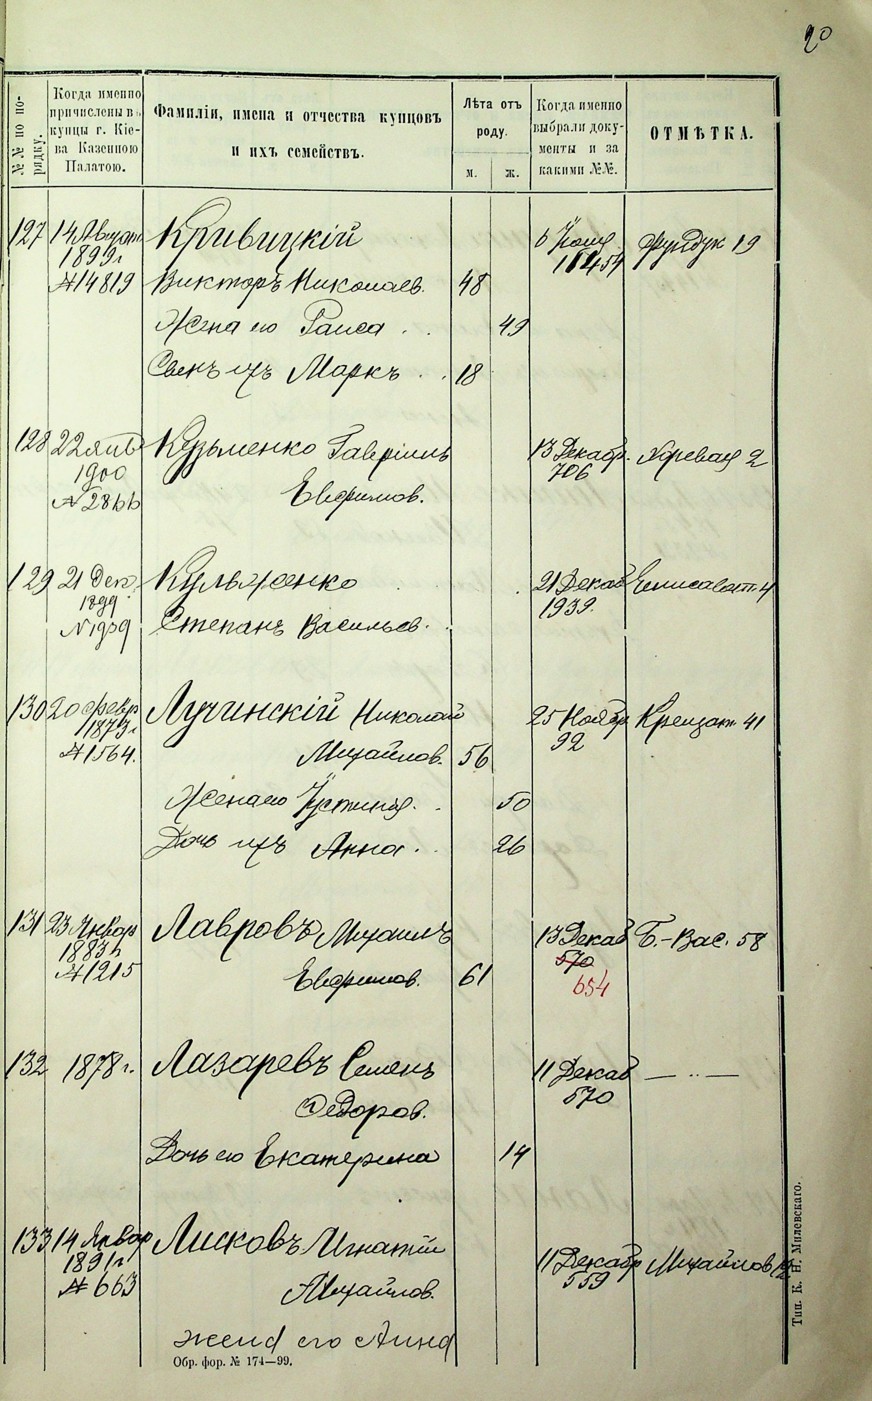 20
№№ по по-
рядку.
Когда именно
причислены въ
купцы г. Кіе-
ва Казенною
Палатою.
Фамиліи, имена и отчества купцовъ
и ихъ семействъ.
Лѣта отъ
роду.
м. ж.
Когда именно
выбрали доку-
менты и за
какими №№.
ОТМѢТКА.
127 14 Август Кривицкій 6 Іюня Фундук 19
1899 г
№ 14819 Викторъ Николаев. 48
Жена его Раиса 49
Сынъ ихъ Маркъ 18
128 22 янв Кузьменко Гавріилъ 13 Декабр.
1900 706
№ 2866 Евфимов.
129 21 Дек. Кульженко 21 Декаб Елисавет. 4
1899 1939.
№ 1939 Степанъ Васильев.
130 20 февр Лучинскій Николай 25 Ноябр Крещат 41
1873 г 92
№ 1564. Михайлов. 56
Жена его Устинія 50
Дочь ихъ Анна 26
131 23 Январ Лавровъ Михаилъ 13 Декаб Б.-Вас. 58
1883 г 570
№ 1215 Евфимов. 61 654
132 1878 г. Лазаревъ Семенъ 11 Декаб — „ —
570
Федоров.
Дочь его Екатерина 14
133 14 Январ Лисковъ Игнатій 11 Декабр Михайлов
1891 г 559
№ 663 Михайлов.
жена его Анна
Обр. фор. № 174—99.
Тип. К. Н. Милевскаго.